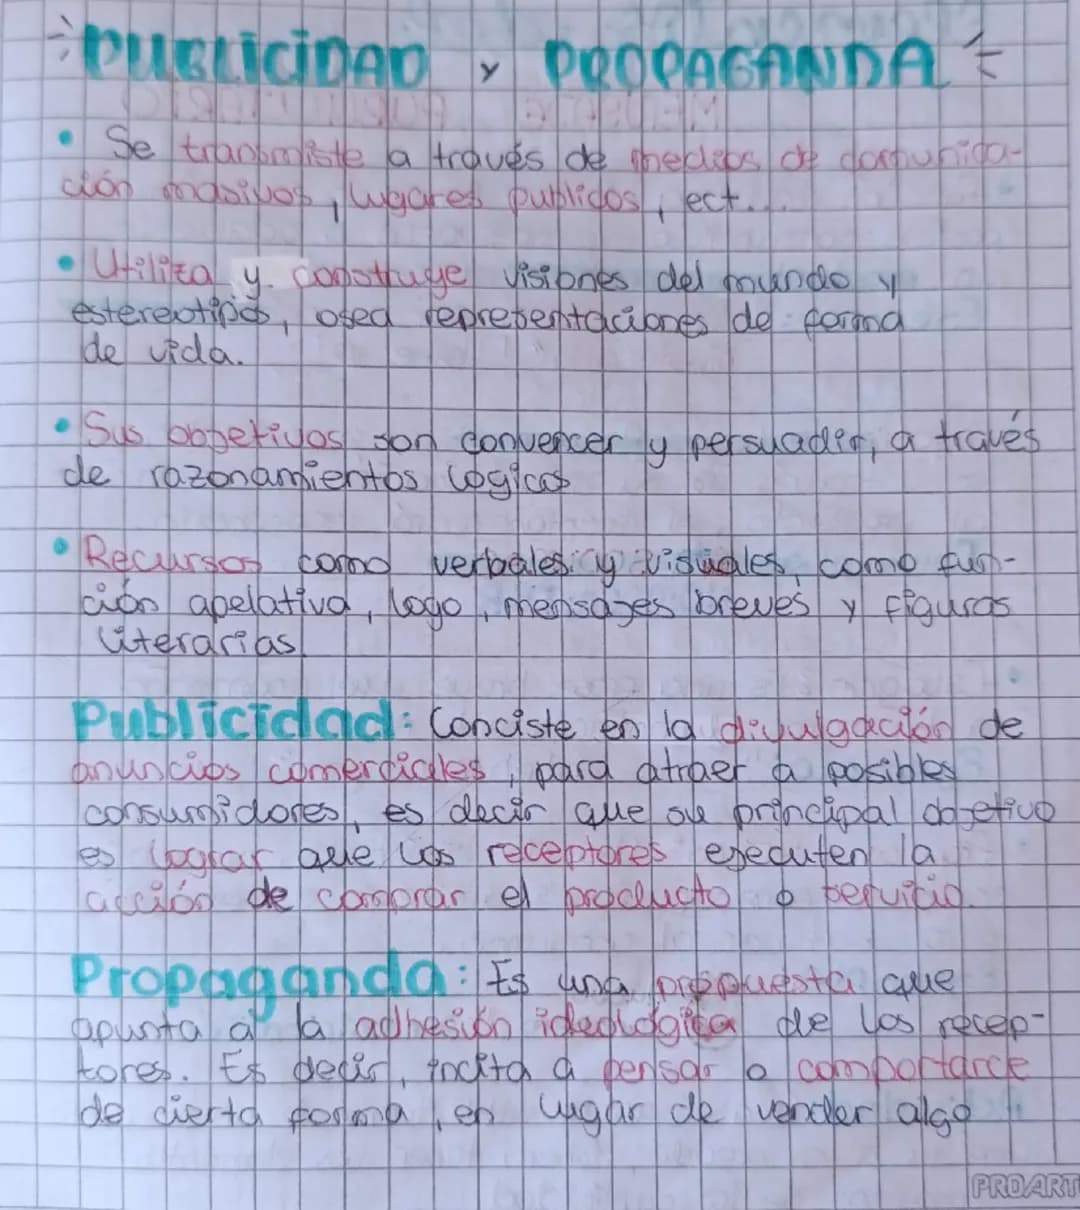 PUBLICIDAD Y PROPAGANDA
• Se tranbmiste a través de medios de comunica-
ción masivos, lugares publicos, ect...
• Utiliza y construye visiones del mundo y
estereotipos, osea representaciones de forma
de vida.
• Sus objetivos son convencer y persuadir, a través
de razonamientos logicos
• Recursos como verbales y visuales, como fun-
ción apelativa, logo, mensajes breves y figuras
literarias.
Publicidad: Conciste en la divulgación de
anuncios comerciales, para atraer a posibles
consumidores, es decir que su principal objetivo
es lograr que los receptores ejecuten la
acción de comprar el producto o servicio.
Propaganda: Es una propuesta que
apunta a la adhesión ideológica de los recep-
tores. Es decir, incita a pensar o comportarce
de cierta forma, en lugar de vender algo
PROART